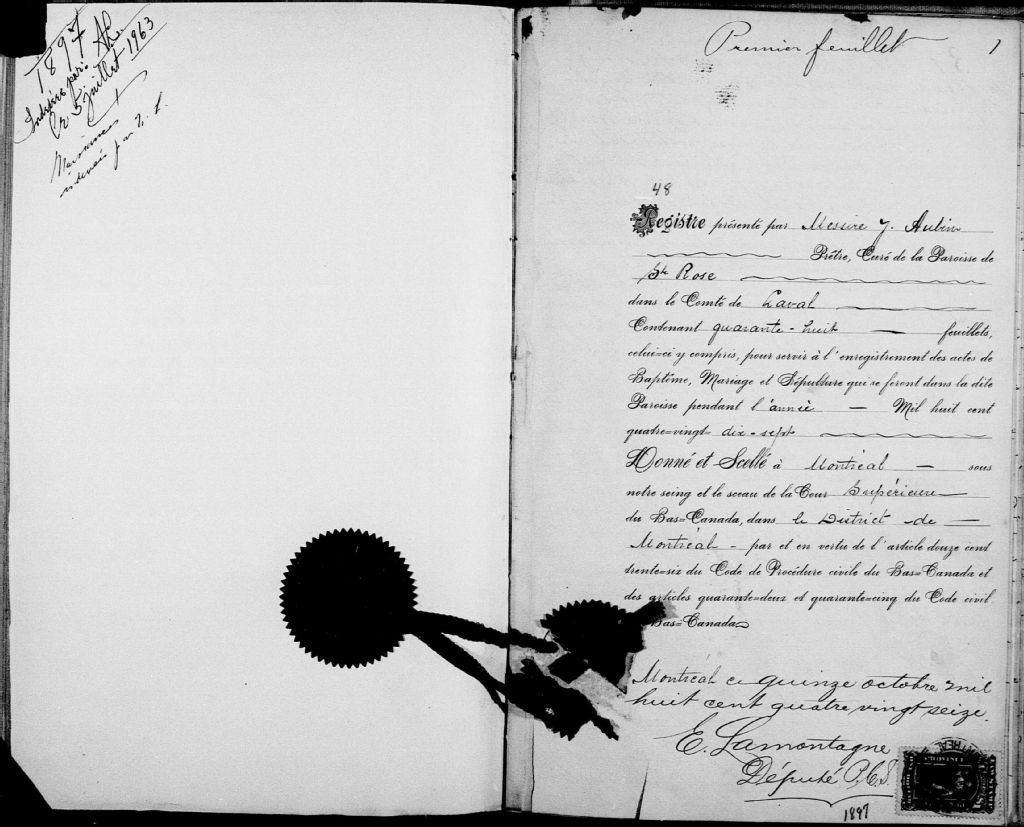 1897
Indexé par:
Ce 5 juillet 1963
Premier feuillet 1
48
Registre présenté par Messire J. Aubin
Prêtre, Curé de la Paroisse de
Ste Rose
dans le Comté de Laval
Contenant quarante-huit feuillets,
celui=ci y compris, pour servir à l'enregistrement des actes de
Baptême, Mariage et Sépulture qui se feront dans la dite
Paroisse pendant l'année Mil huit cent
quatre=vingt dix-sept
Donné et Scellé à Montréal sous
notre seing et le sceau de la Cour Supérieure
du Bas=Canada, dans le District de
Montréal - par et en vertu de l'article douze cent
trente=six du Code de Procédure civile du Bas=Canada et
des articles quarante=deux et quarante=cinq du Code civil
Bas=Canada
Montréal ce quinze octobre mil
huit cent quatre vingt seize.
E. Lamontagne
Député P.C.S.
1897